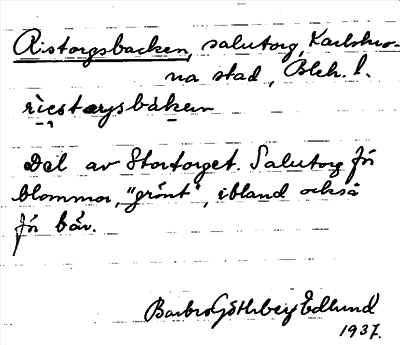 Ristorgsbacken, salutorg, Karlskro-
na stad, Blek. l.
ricstorysbáken
Del av Stortorget. Salutorg för
blommor, "grönt", ibland också
för bär.
Barbro Göthberg Edlund
1937.